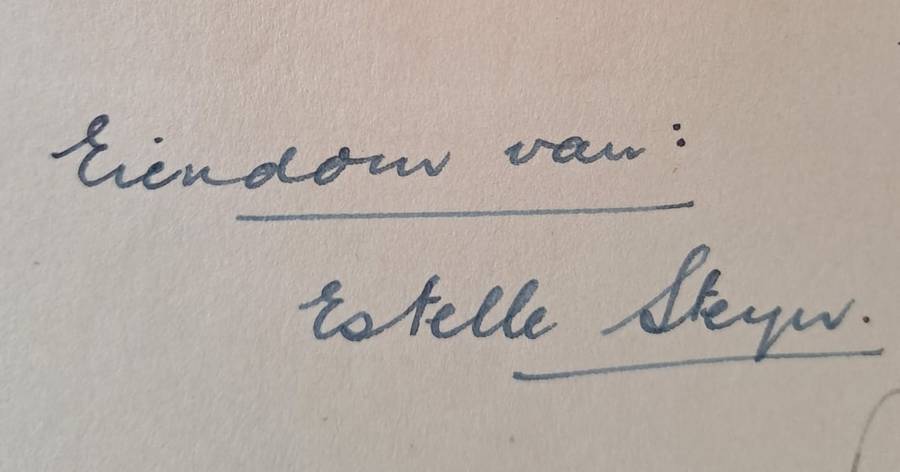 Eiendom van:
Estelle Steyn.